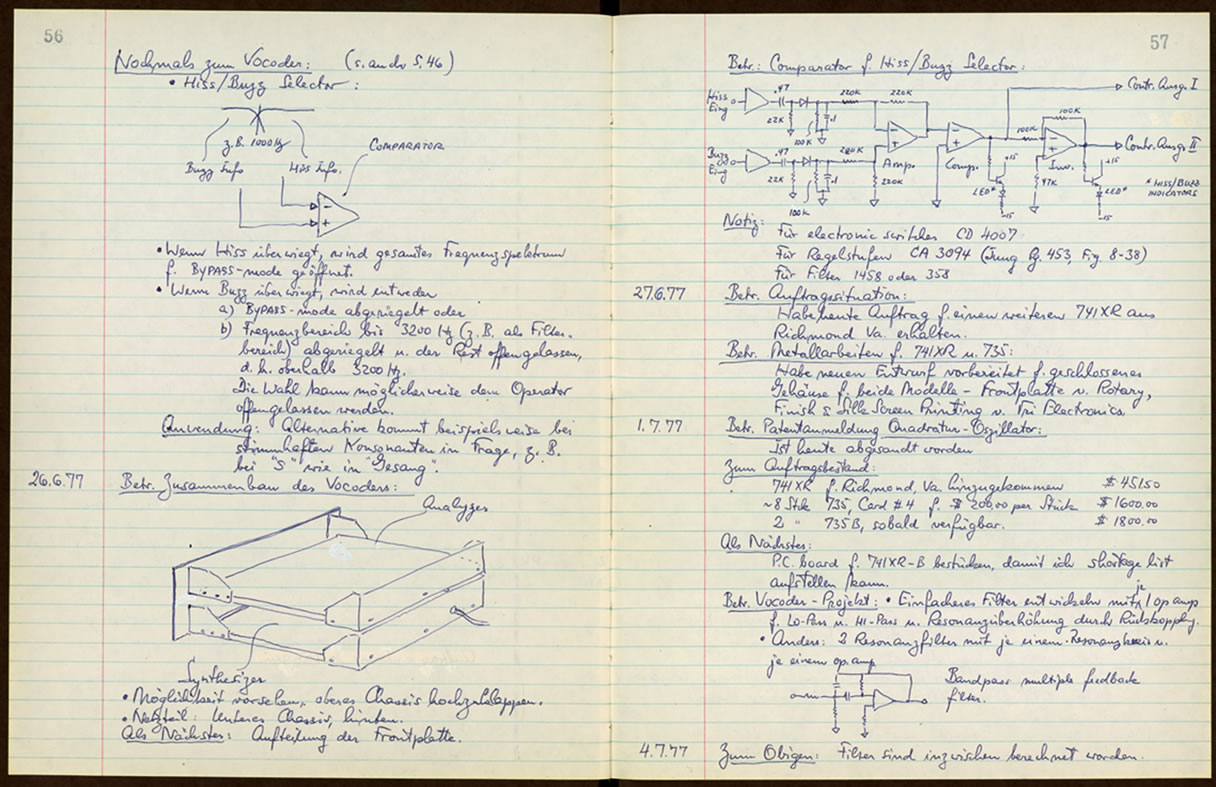 56
Nochmals zum Vocoder: (s. auch S. 46)
• Hiss/Buzz Selector:
z.B. 1000 Hz
Buzz Info
Hiss Info.
COMPARATOR
−
+
• Wenn Hiss überwiegt, wird gesamtes Frequenzspektrum
f. BYPASS-mode geöffnet.
• Wenn Buzz überwiegt, wird entweder
a) BYPASS-mode abgeriegelt oder
b) Frequenzbereich bis 3200 Hz (z.B. als Filter-
bereich) abgeriegelt u. der Rest offengelassen,
d.h. oberhalb 3200 Hz.
Die Wahl kann möglicherweise dem Operator
offengelassen werden.
Anwendung: Alternative kommt beispielsweise bei
stimmhaften Konsonanten in Frage, z.B.
bei "S" wie in "Gesang".
26.6.77
Betr. Zusammenbau des Vocoders:
Analyzer
Synthesizer
• Möglichkeit vorsehen, oberes Chassis hochzuklappen.
• Netzteil: Unteres Chassis, hinten.
Als Nächstes: Aufteilung der Frontplatte.
57
Betr.: Comparator f. Hiss/Buzz Selector:
Hiss Eing
.47
22K
100K
.1
220K
220K
Buzz Eing
.47
22K
100K
.1
220K
220K
Amp.
Comp.
100K
100K
Inv.
47K
+15
LED*
-15
+15
LED*
-15
Contr. Ausg. I
Contr. Ausg. II
* HISS/BUZZ
INDICATORS
Notiz:
Für electronic switches CD 4007
Für Regelstufen CA 3094 (Jung Pg. 453, Fig. 8-38)
Für Filter 1458 oder 358
27.6.77
Betr. Auftragssituation:
Habe heute Auftrag f. einen weiteren 741XR aus
Richmond Va. erhalten.
Betr. Metallarbeiten f. 741XR u. 735:
Habe neuen Entwurf vorbereitet f. geschlossenes
Gehäuse f. beide Modelle - Frontplatte v. Rotary,
Finish & Silk Screen Printing v. Tri Electronics.
1.7.77
Betr. Patentanmeldung Quadratur-Oszillator:
Ist heute abgesandt worden
Zum Auftragsbestand:
741XR f. Richmond, Va. hinzugekommen $ 4515.0
~8 Stck 735, Card #4 f. $ 200.00 per Stück $ 1600.00
2 " 735B, sobald verfügbar. $ 1800.00
Als Nächstes:
P.C. board f. 741XR-B bestücken, damit ich shortage list
aufstellen kann.
Betr. Vocoder-Projekt: • Einfacheres Filter entwickeln mit je 1 op amp
f. Lo-Pass u. HI-Pass u. Resonanzüberhöhung durch Rückkopplg.
• Anders: 2 Resonanzfilter mit je einem Resonanzkreis u.
je einem op. amp
Bandpass multiple feedback
filter.
4.7.77
Zum Obigen: Filter sind inzwischen berechnet worden.